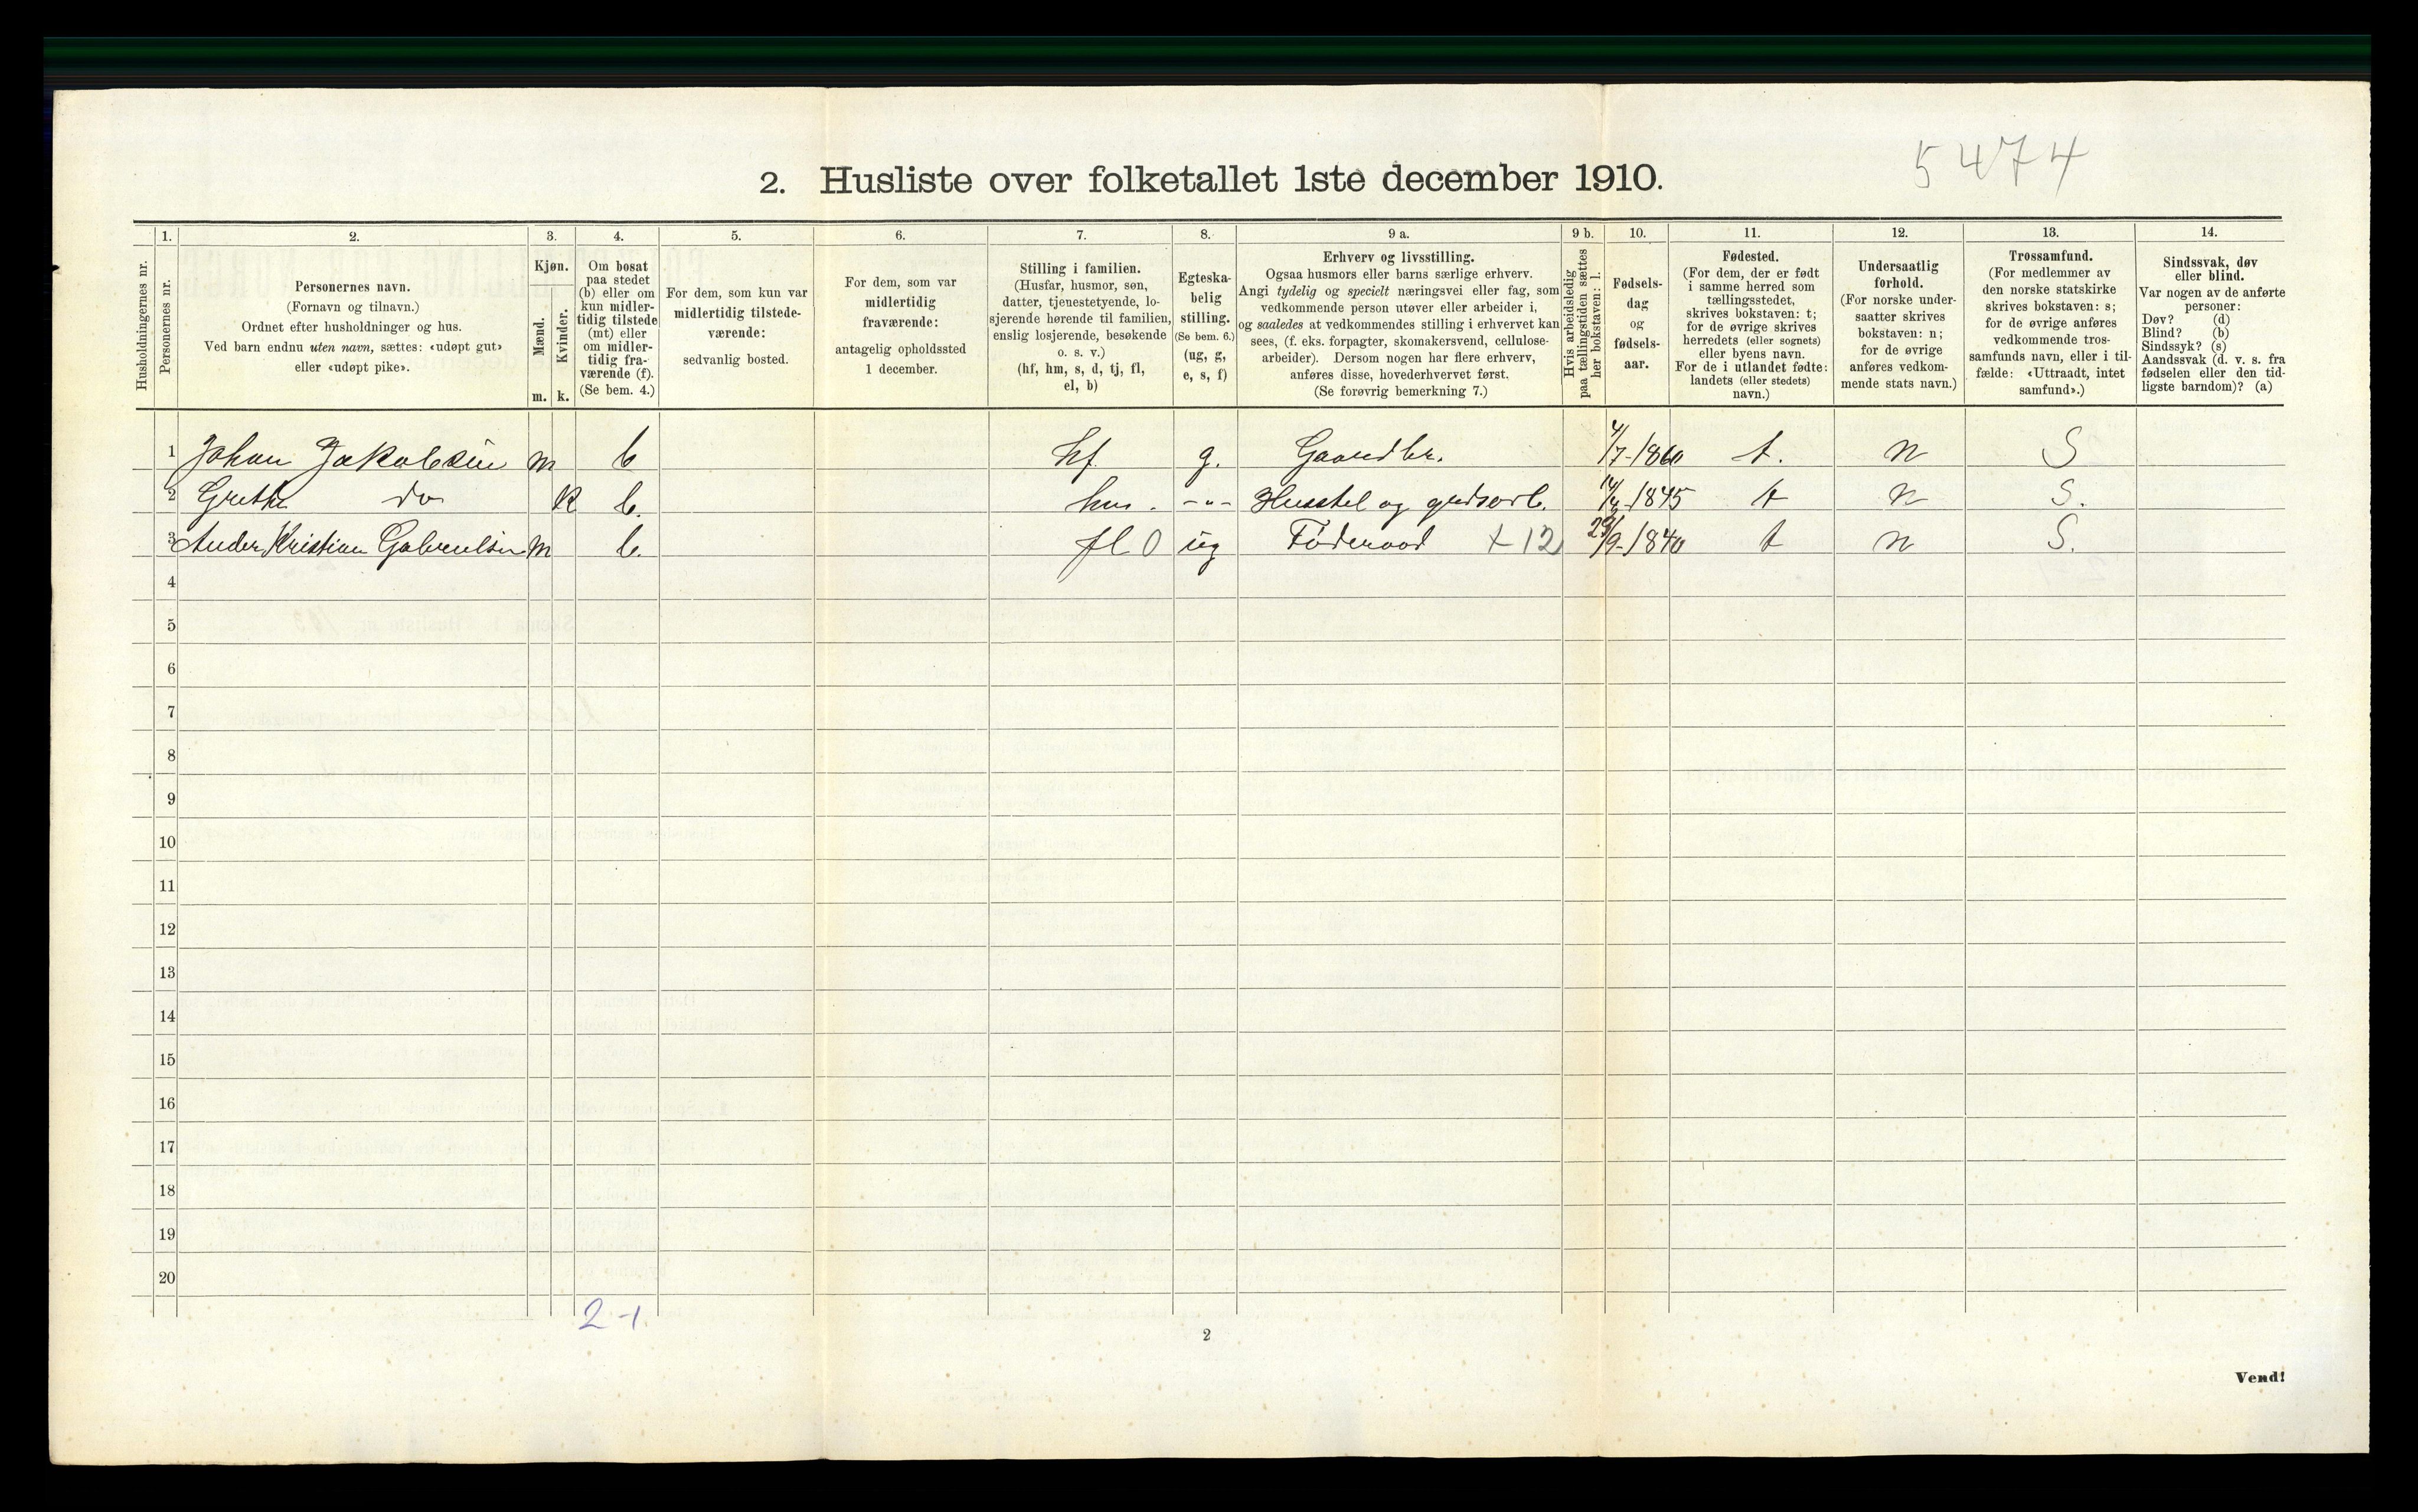 5474
2. Husliste over folketallet 1ste december 1910.
1. 2. 3. 4. 5. 6. 7. 8. 9 a. 9 b. 10. 11. 12. 13. 14.
Husholdningernes nr.
Personernes nr.
Personernes navn.
(Fornavn og tilnavn.)
Ordnet efter husholdninger og hus.
Ved barn endnu uten navn, sættes: «udøpt gut»
eller «udøpt pike».
Kjøn.
Mænd.
Kvinder.
m. k.
Om bosat
paa stedet
(b) eller om
kun midler-
tidig tilstede
(mt) eller
om midler-
tidig fra-
værende (f).
(Se bem. 4.)
For dem, som kun var
midlertidig tilstede-
værende:
sedvanlig bosted.
For dem, som var
midlertidig
fraværende:
antagelig opholdssted
1 december.
Stilling i familien.
(Husfar, husmor, søn,
datter, tjenestetyende, lo-
sjerende hørende til familien,
enslig losjerende, besøkende
o. s. v.)
(hf, hm, s, d, tj, fl,
el, b)
Egteska-
belig
stilling.
(Se bem. 6.)
(ug, g,
e, s, f)
Erhverv og livsstilling.
Ogsaa husmors eller barns særlige erhverv.
Angi tydelig og specielt næringsvei eller fag, som
vedkommende person utøver eller arbeider i,
og saaledes at vedkommendes stilling i erhvervet kan
sees, (f. eks. forpagter, skomakersvend, cellulose-
arbeider). Dersom nogen har flere erhverv,
anføres disse, hovederhvervet først.
(Se forøvrig bemerkning 7.)
Hvis arbeidsledig
paa tællingstiden sættes
her bokstaven: l.
Fødsels-
dag
og
fødsels-
aar.
Fødested.
(For dem, der er født
i samme herred som
tællingsstedet,
skrives bokstaven: t;
for de øvrige skrives
herredets (eller sognets)
eller byens navn.
For de i utlandet fødte:
landets (eller stedets)
navn.)
Undersaatlig
forhold.
(For norske under-
saatter skrives
bokstaven: n;
for de øvrige
anføres vedkom-
mende stats navn.)
Trossamfund.
(For medlemmer av
den norske statskirke
skrives bokstaven: s;
for de øvrige anføres
vedkommende tros-
samfunds navn, eller i til-
fælde: «Uttraadt, intet
samfund».)
Sindssvak, døv
eller blind.
Var nogen av de anførte
personer:
Døv? (d)
Blind? (b)
Sindssyk? (s)
Aandssvak (d. v. s. fra
fødselen eller den tid-
ligste barndom)? (a)
1 Johan Jakobsen m b hf. g. Gaardbr. 4/7-1860 t. n S
2 Grethe do k b. hus. -"- Husstel og gudsarb. 1845 t n S.
3 Anders Kristian Gabrielsen m b. fl 0 ug Føderaad +12 29/9-1840 t n S.
4
5
6
7
8
9
10
11
12
13
14
15
16
17
18
19
20
2-1
2
Vend!